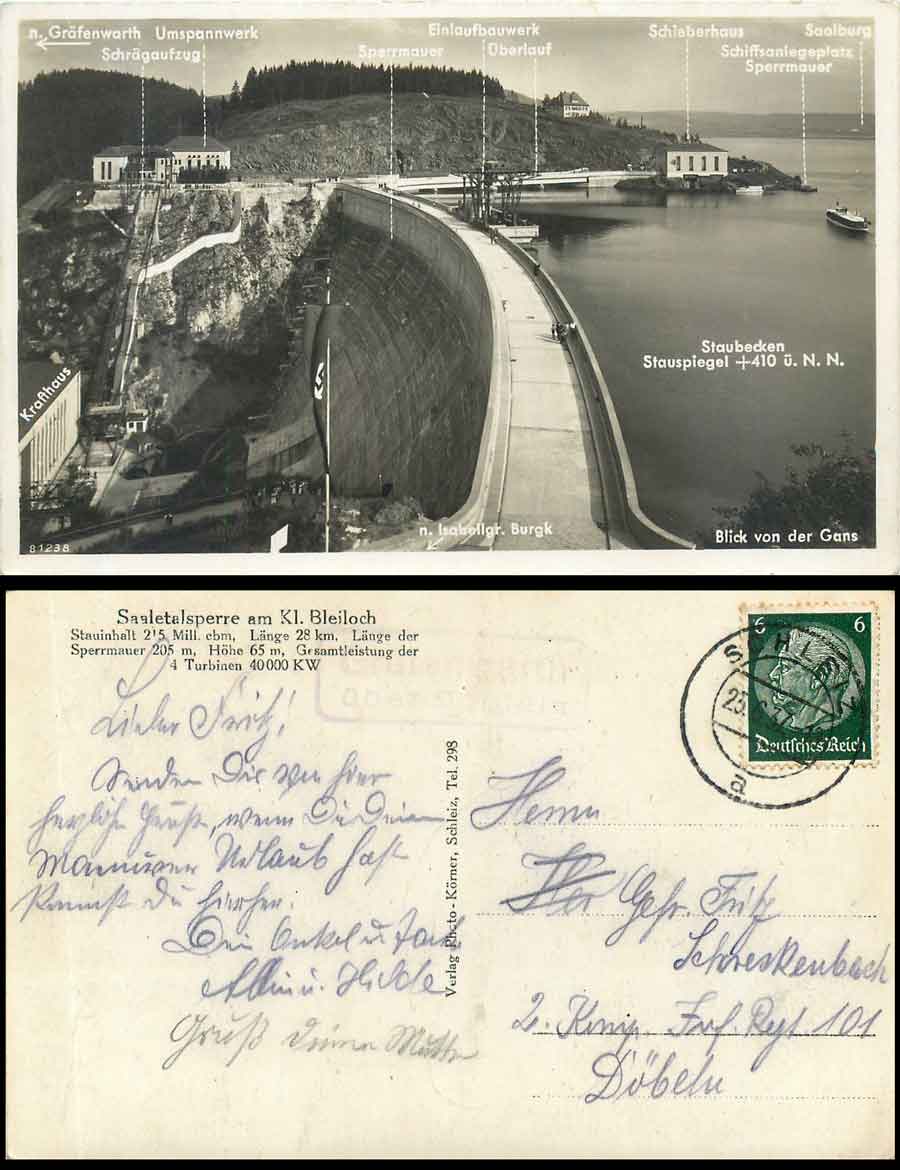 n. Gräfenwarth Umspannwerk Einlaufbauwerk Schieberhaus Saalburg
Schrägaufzug Sperrmauer Überlauf Schiffsanlegeplatz
Sperrmauer
Staubecken
Stauspiegel +410 ü. N. N.
Krafthaus
n. Isabellgr. Burgk
Blick von der Gans
81238
Saaletalsperre am Kl. Bleiloch
Stauinhalt 215 Mill. cbm, Länge 28 km, Länge der
Sperrmauer 205 m, Höhe 65 m, Gesamtleistung der
4 Turbinen 40000 KW
6 6
Deutsches Reich
SCHLEIZ
a
Lieber Fritz!
Senden Dir von hier
herzliche Grüße, wenn Du Deinen
Manöver Urlaub hast
kannst Du hierher.
Dein Onkel u. Tante
u. Hilde
Gruß Deiner Mutter
Verlag Photo-Körner, Schleiz, Tel. 298
Herrn
Gefr. Fritz
Schreckenbach
2. Komp. Inf. Regt. 101
Döbeln